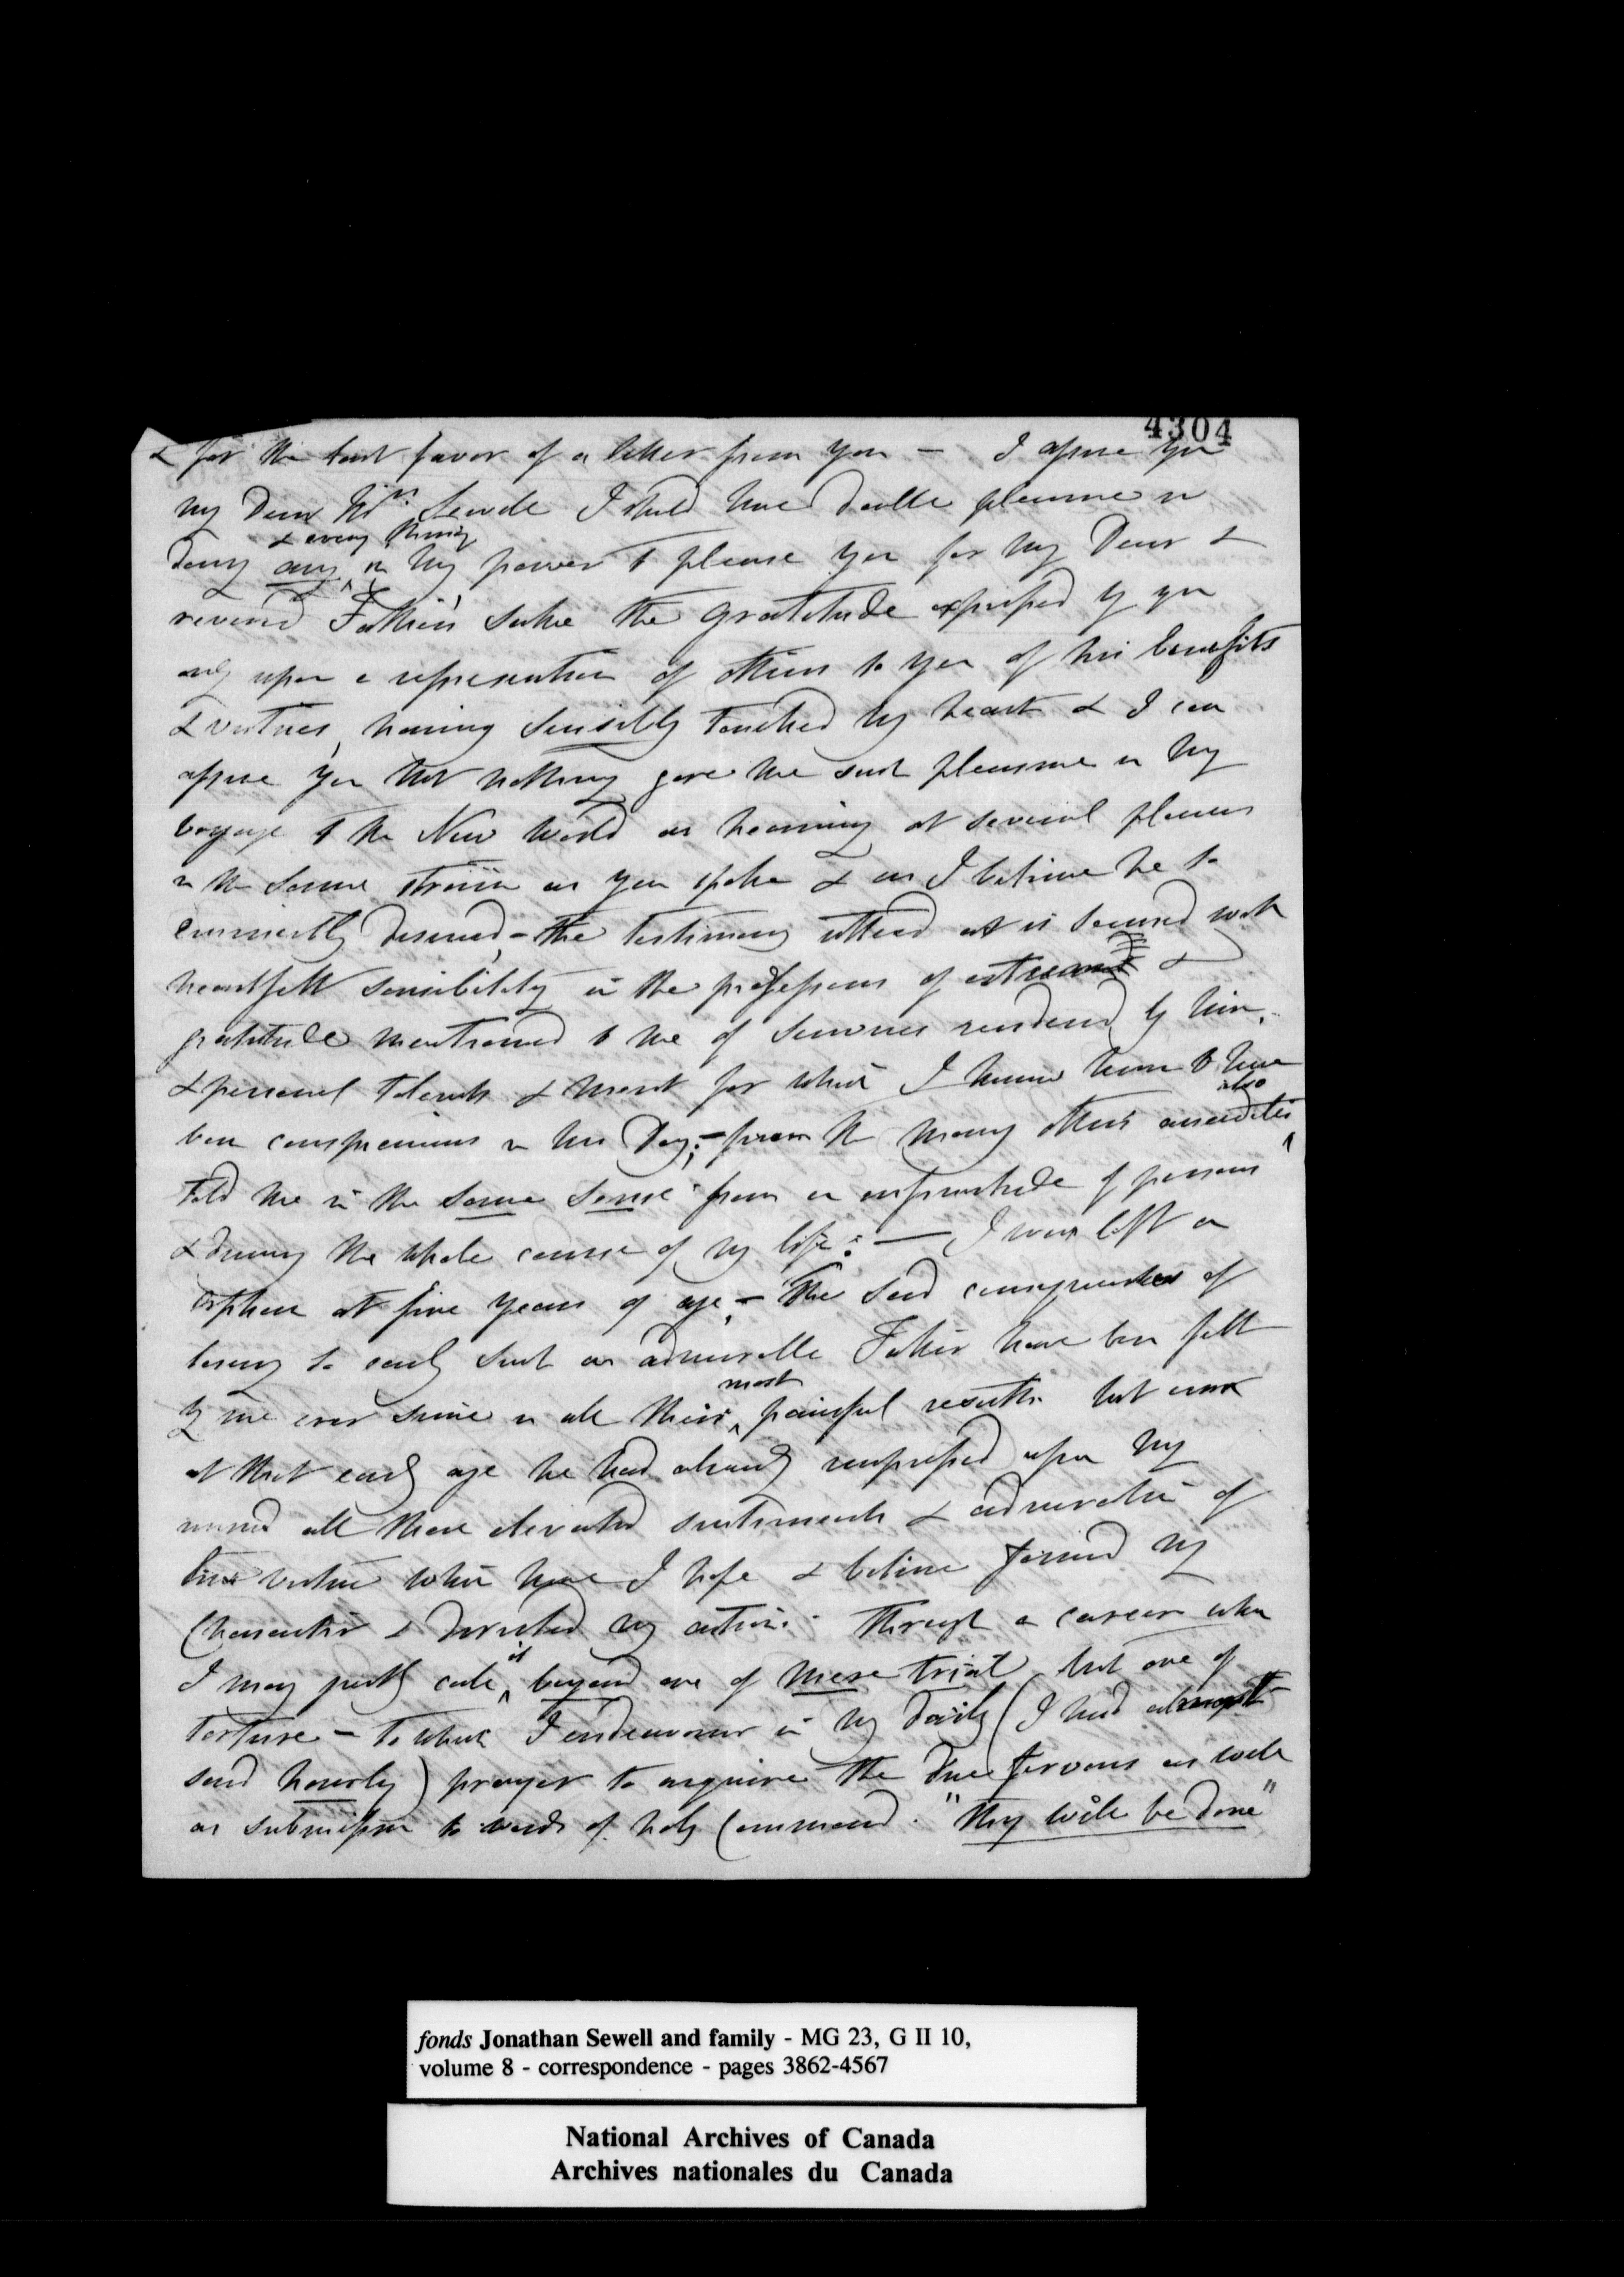 4304
& for the last favor of a letter from you – I assure you
my Dear Mrs. Sewell I should have double pleasure in
doing any & every thing in my power to please you for my Dear &
revered Father's sake the gratitude expressed by you
only upon a representation of others to you of his benefits
& virtues, having sensibly touched my heart & I can
assure you that nothing gave me such pleasure in my
voyage to the New World as hearing at several places
in the same strain as you spoke & as I believe he so
eminently deserved, – the testimony uttered as it seemed with
heartfelt sensibility in the professions of esteem &
gratitude mentioned to me of services rendered by him,
& personal talents & merit for which I know him to have
been conspicuous in his Day; – from the many other anecdotes also
told me in the same sense from an infinitude of persons
& during the whole course of my life: — I was left an
orphan at five years of age, – The sad consequences of
losing so early such an admirable Father have been felt
by me ever since in all their most painful results but even
at that early age he had already impressed upon my
mind all those elevated sentiments & admiration of
true virtue which have I hope & believe formed my
Character & directed my actions through a career when
I may justly call it beyond one of mere trial but one of
torture – to which I endeavour in my daily (I had almost
said hourly) prayer to acquire the due fervour as well
as submission to words of holy Command. "Thy will be done"
fonds Jonathan Sewell and family - MG 23, G II 10,
volume 8 - correspondence - pages 3862-4567
National Archives of Canada
Archives nationales du Canada